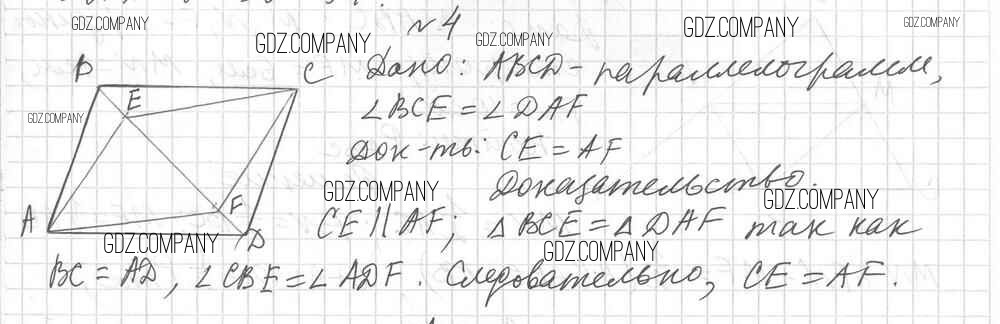 №4
GDZ.COMPANY GDZ.COMPANY GDZ.COMPANY GDZ.COMPANY GDZ.COMPANY
B C Дано: ABCD - параллелограмм,
E
GDZ.COMPANY ∠BCE = ∠DAF
Док-ть: CE = AF
GDZ.COMPANY Доказательство. GDZ.COMPANY
A F D CE || AF; △BCE = △DAF так как
GDZ.COMPANY GDZ.COMPANY
BC = AD, ∠CBE = ∠ADF. Следовательно, CE = AF.